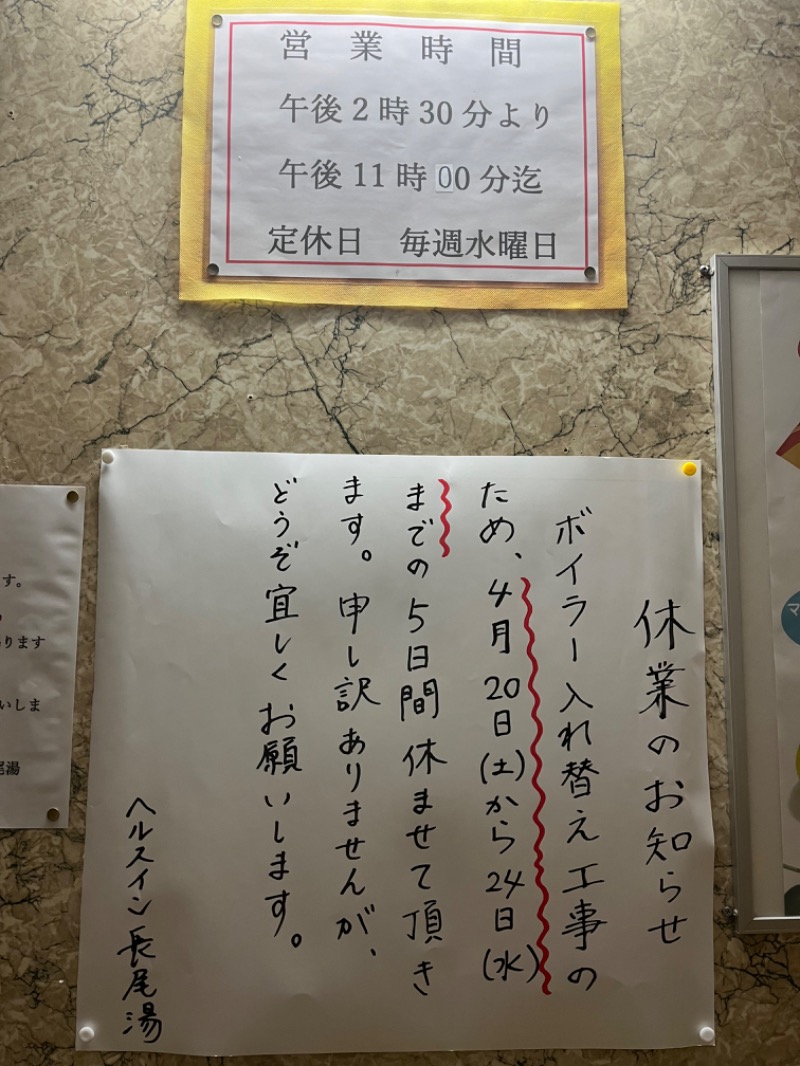 営業時間
午後2時30分より
午後11時00分迄
定休日 毎週水曜日
休業のお知らせ
ボイラー入れ替え工事の
ため、4月20日(土)から24日(水)
までの5日間休ませて頂き
ます。申し訳ありませんが、
どうぞ宜しくお願いします。
ヘルスイン長尾湯
す。
ります
いしま
尾湯
マ